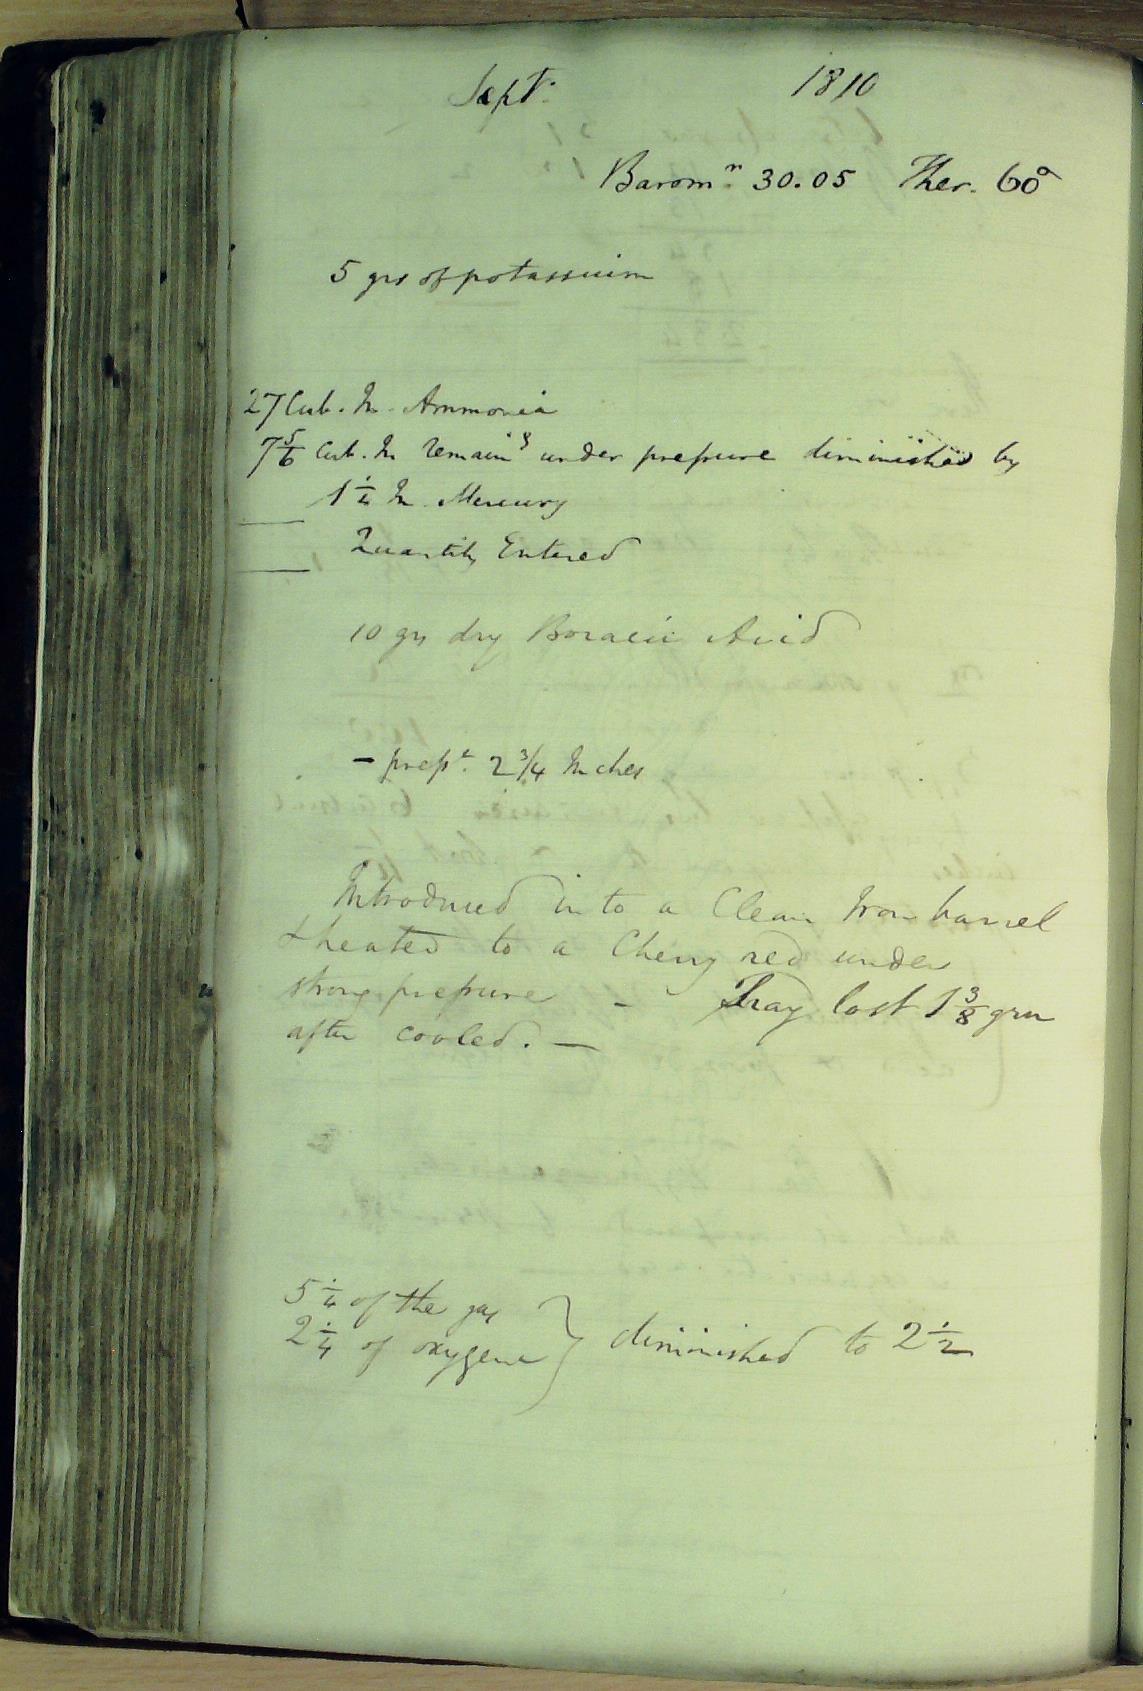 Sept. 1810
Barom.r 30.05 Ther. 60°
5 grs of potassium
27 Cub. In. Ammonia
7 5/6 Cub. In remaing under pressure diminished by
1 1/4 In. Mercury
Quantity Entered
10 grs dry Boracic Acid
- press.e 2 3/4 Inches
Introduced in to a Clean Iron barrel
& heated to a Cherry red under
strong pressure - Tray lost 1 3/8 grn
after cooled. —
5 1/4 of the gas
2 1/4 of oxygene } diminished to 2 1/2